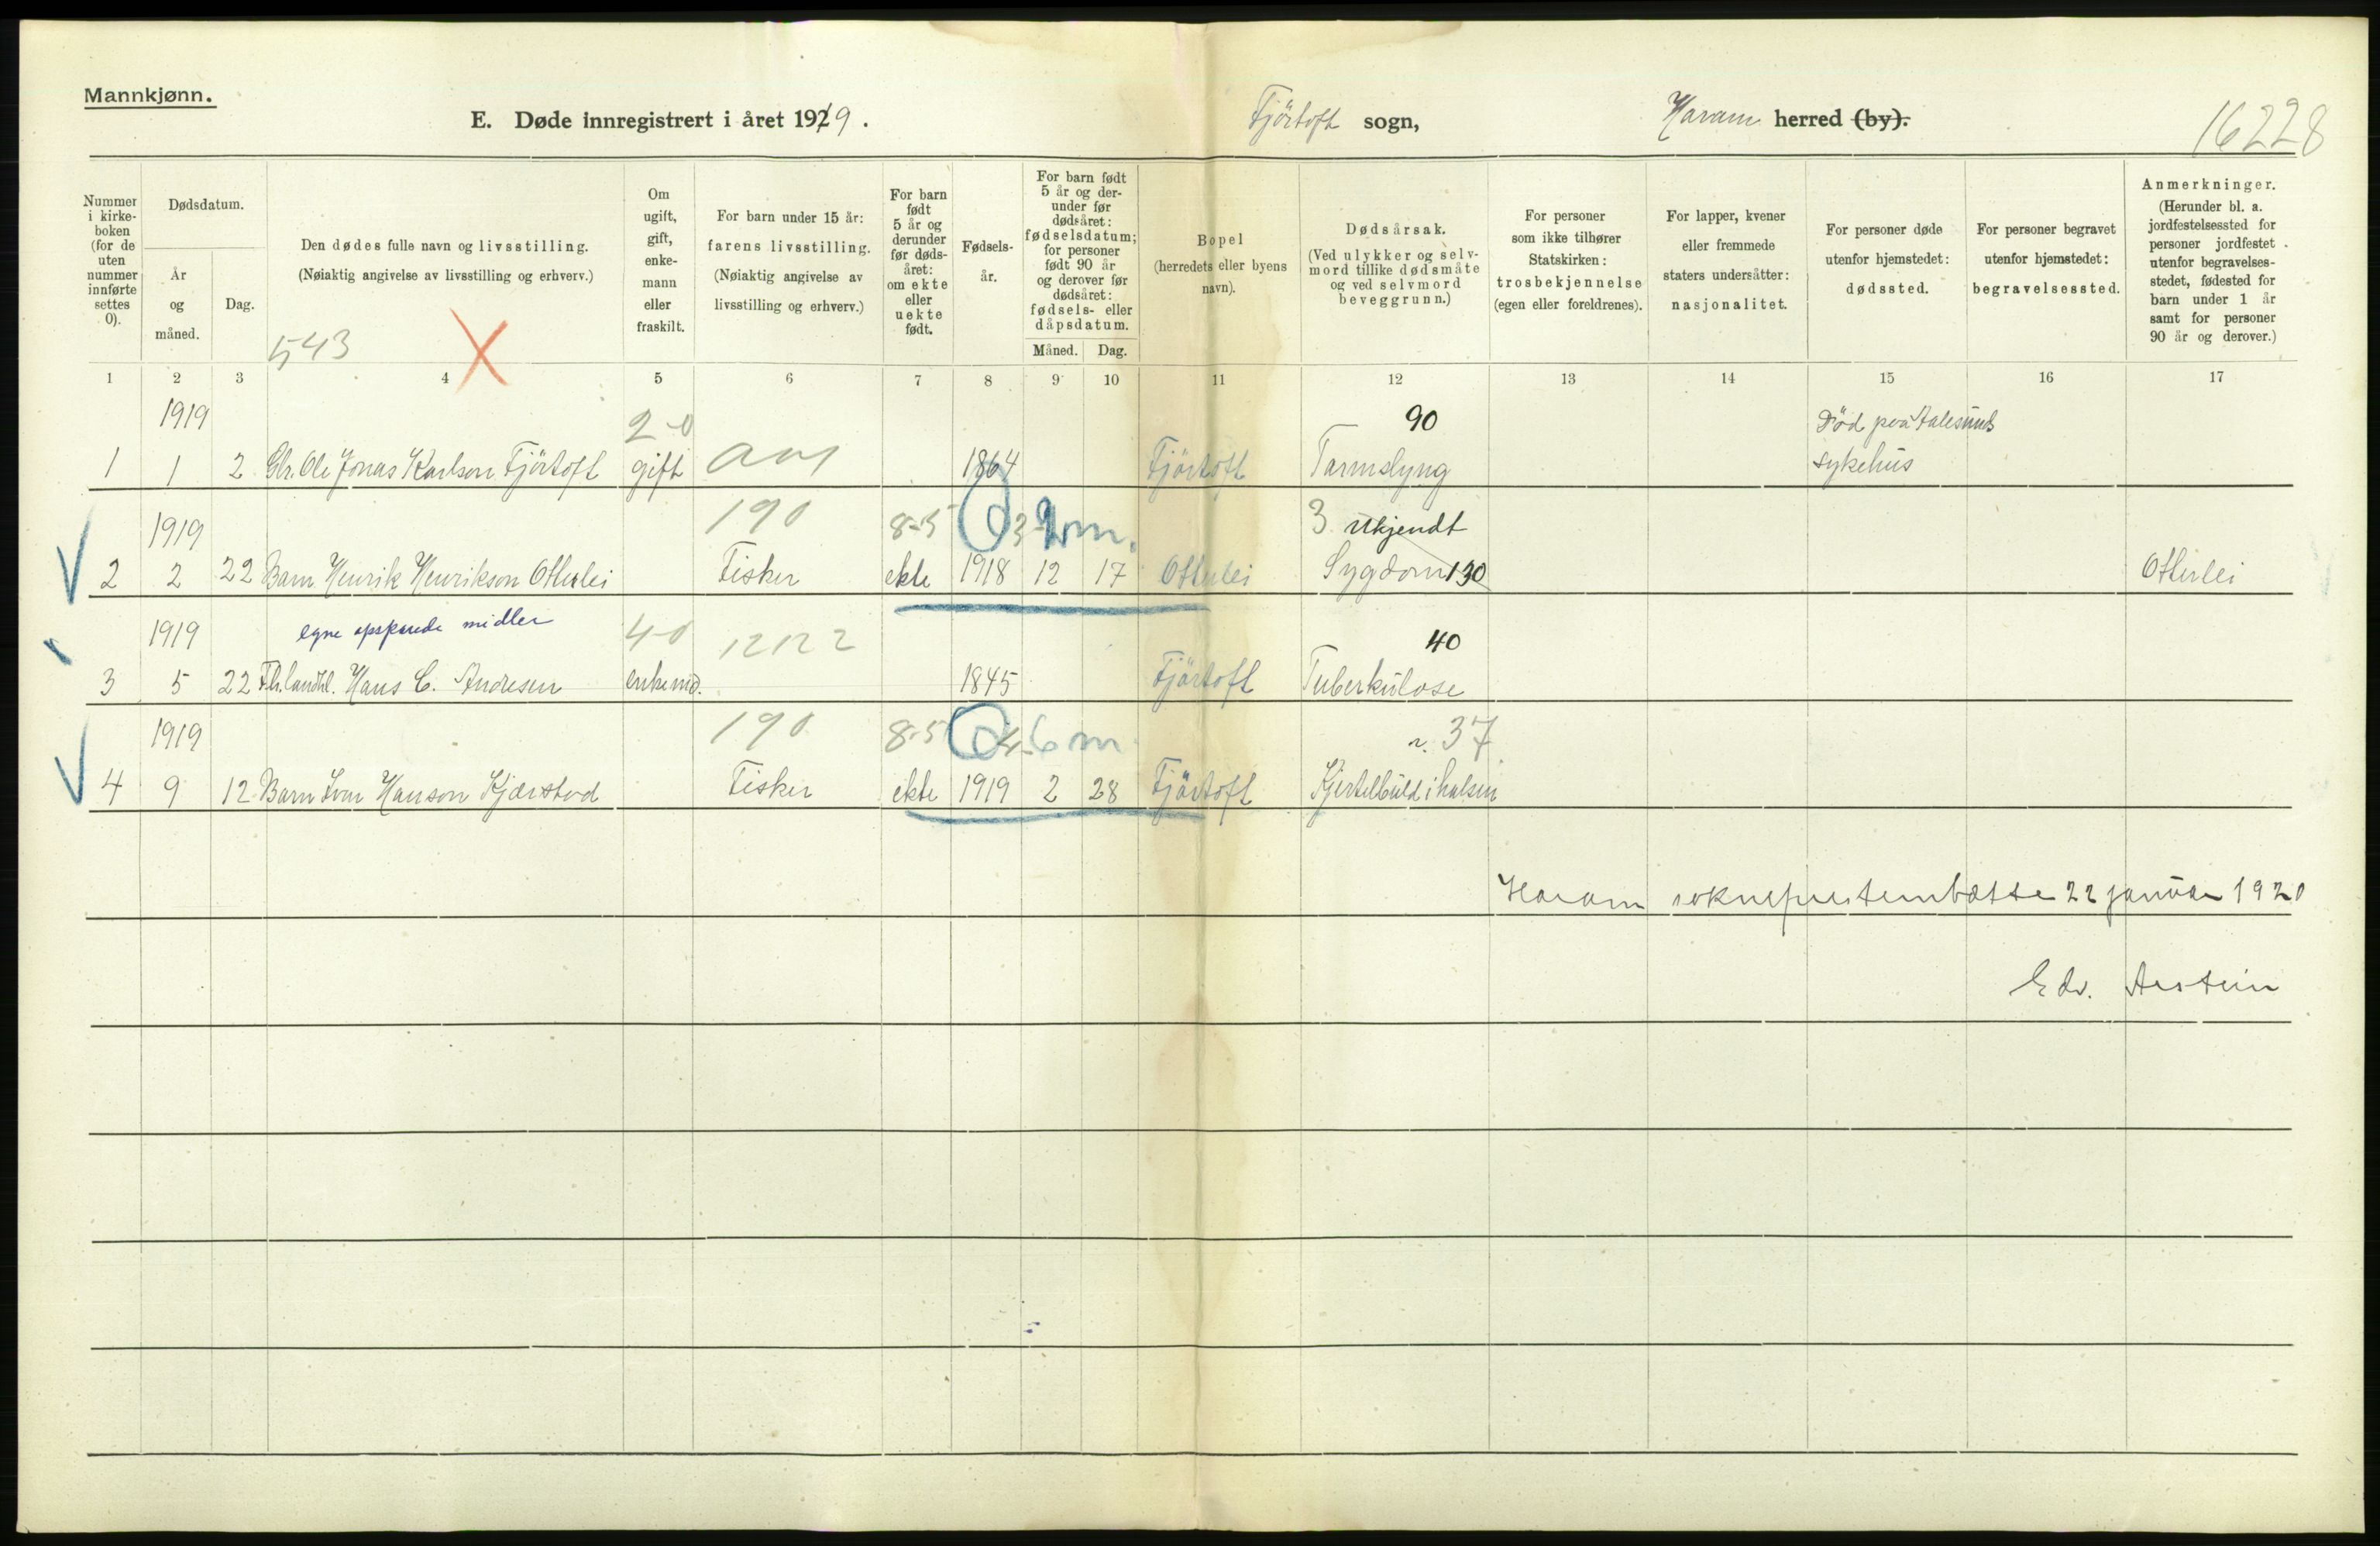 Mannkjønn.
E. Døde innregistrert i året 1919.
Fjörtoft sogn,
Haram herred (by).
16228
Nummer i kirke-boken (for de uten nummer innførte settes 0).
Dødsdatum.
År og måned.
Dag.
Den dødes fulle navn og livsstilling.
(Nøiaktig angivelse av livsstilling og erhverv.)
543
Om ugift, gift, enke-mann eller fraskilt.
For barn under 15 år:
farens livsstilling.
(Nøiaktig angivelse av livsstilling og erhverv.)
For barn født 5 år og derunder før døds-året: om ekte eller uekte født.
Fødsels-år.
For barn født 5 år og der-under før dødsåret: fødselsdatum; for personer født 90 år og derover før dødsåret: fødsels- eller dåpsdatum.
Måned.
Dag.
Bopel
(herredets eller byens navn).
Dødsårsak.
(Ved ulykker og selv-mord tillike dødsmåte og ved selvmord beveggrunn.)
For personer som ikke tilhører Statskirken:
trosbekjennelse
(egen eller foreldrenes).
For lapper, kvener eller fremmede staters undersåtter:
nasjonalitet.
For personer døde utenfor hjemstedet:
dødssted.
For personer begravet utenfor hjemstedet:
begravelsessted.
Anmerkninger.
(Herunder bl. a. jordfestelsessted for personer jordfestet utenfor begravelses-stedet, fødested for barn under 1 år samt for personer 90 år og derover.)
1 2 3 4 5 6 7 8 9 10 11 12 13 14 15 16 17
1919 2-0 90 Död paa Aalesunds
1 1 2 Ole Jonas Karlson Fjörtoft gift 1864 Fjörtoft Tarmslyng sykehus
1919 190 8-5 3 2 m. 3 Ukjendt
2 2 22 Barn Henrik Henrikson Otterlei Fisker ekte 1918 12 17 Otterlei Sygdom 130 Otterlei
1919 egne opsparede midler 4-0 12122 40
3 5 22 Fh. landhl. Hans C. Andresen enkemd. 1845 Fjörtoft Tuberkulose
1919 190 8-5 6 m 37
4 9 12 Barn Hanson Kjærstad Fisker ekte 1919 2 28 Fjörtoft Kjertelbuld i halsen
Haram sokneprestembætte 22 januar 1920
Edv. Aastein